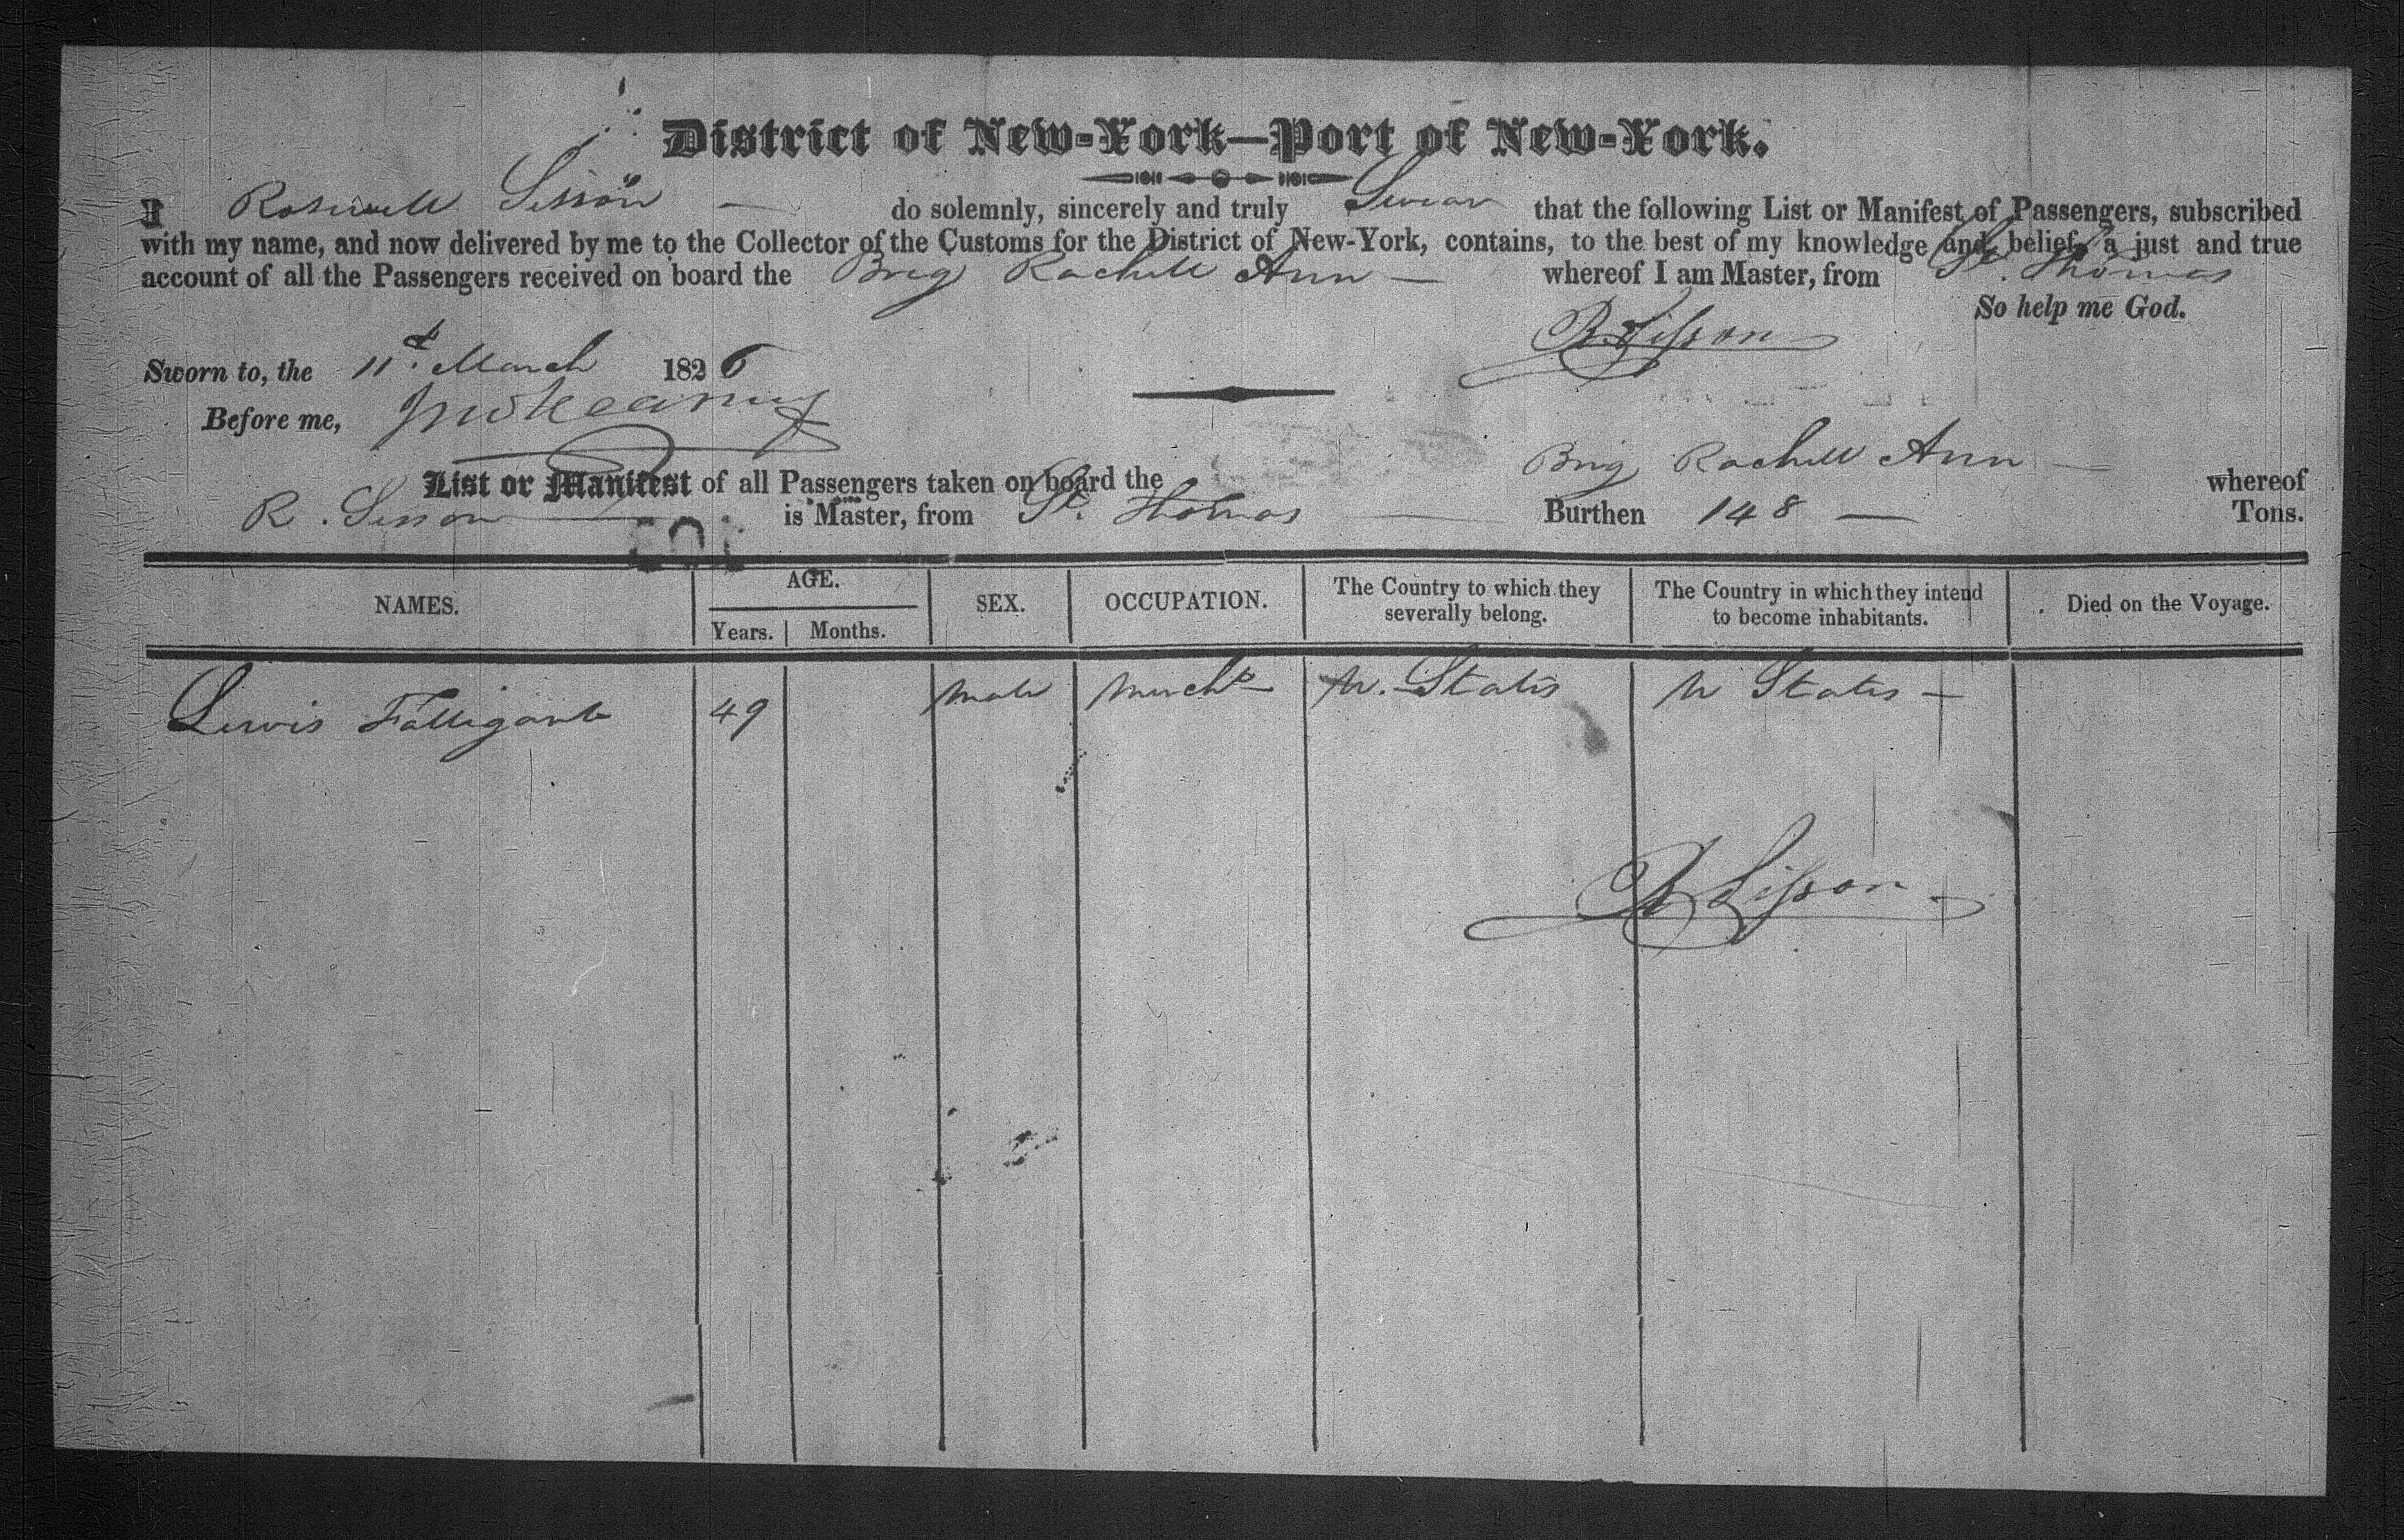 District of New-York—Port of New-York.
I Roswell Sisson — do solemnly, sincerely and truly Swear that the following List or Manifest of Passengers, subscribed
with my name, and now delivered by me to the Collector of the Customs for the District of New-York, contains, to the best of my knowledge and belief, a just and true
account of all the Passengers received on board the Brig Rachell Ann — whereof I am Master, from St. Thomas
So help me God.
R Sisson
Sworn to, the 11th March 1826
Before me,
List or Manifest of all Passengers taken on board the Brig Rachell Ann — whereof
R. Sisson is Master, from St. Thomas — Burthen 148 — Tons.
NAMES. AGE. Years. Months. SEX. OCCUPATION. The Country to which they severally belong. The Country in which they intend to become inhabitants. Died on the Voyage.
Lewis Falligant 49 Male Mercht U. States U States —
R Sisson